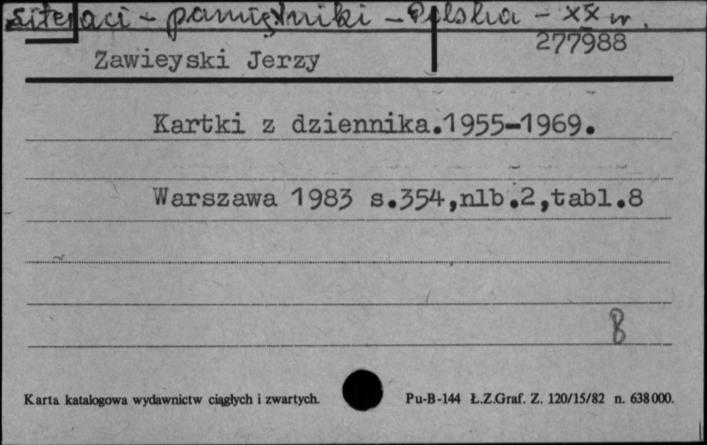 literaci - pamiętniki - Polska - XX w.
277988
Zawieyski Jerzy
Kartki z dziennika.1955-1969.
Warszawa 1983 s.354,nlb.2,tabl.8
B
Karta katalogowa wydawnictw ciągłych i zwartych. Pu-B-144 Ł.Z.Graf. Z. 120/15/82 n. 638000.